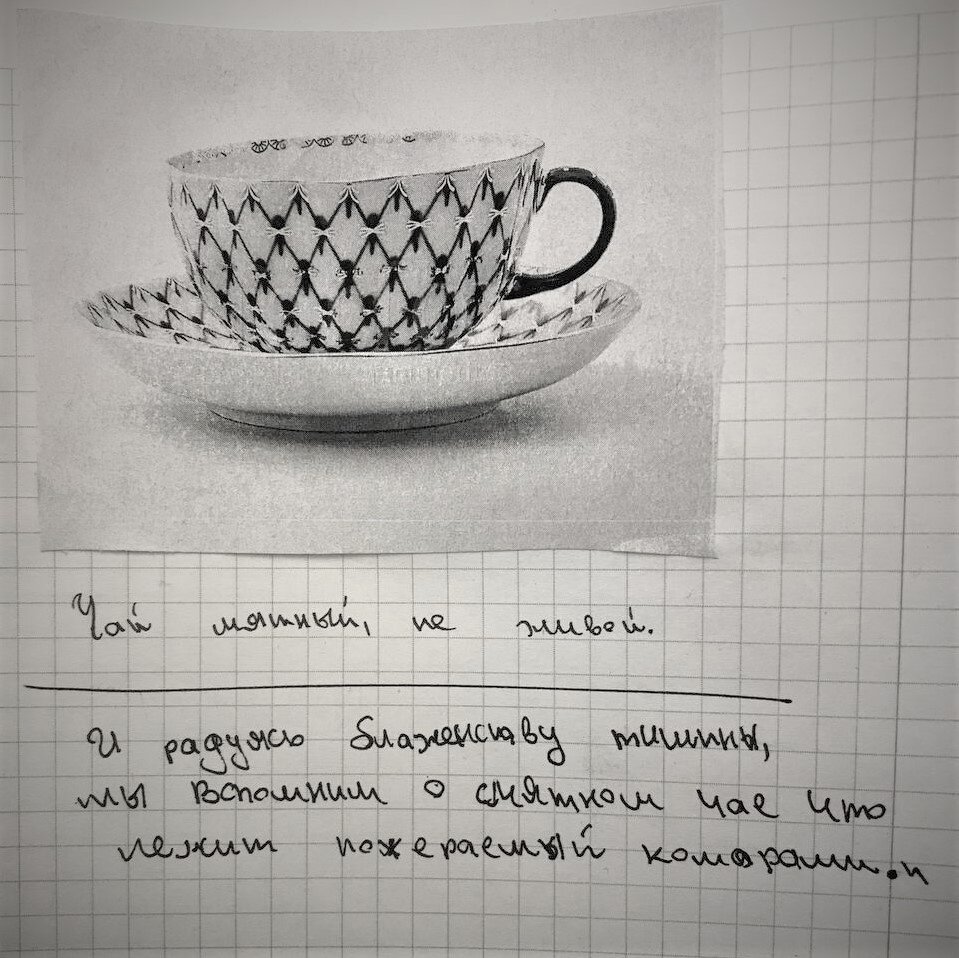 Чай мятный, не живой.
И радуясь блаженству тишины,
мы вспомним о смятном чае что
лежит пожераемый комарами.